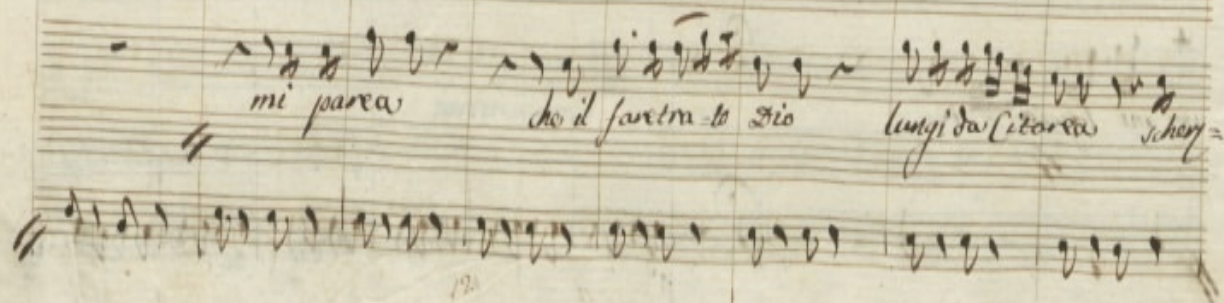 mi parea che il faretra=to Dio lungi da Citerea scherz=
12